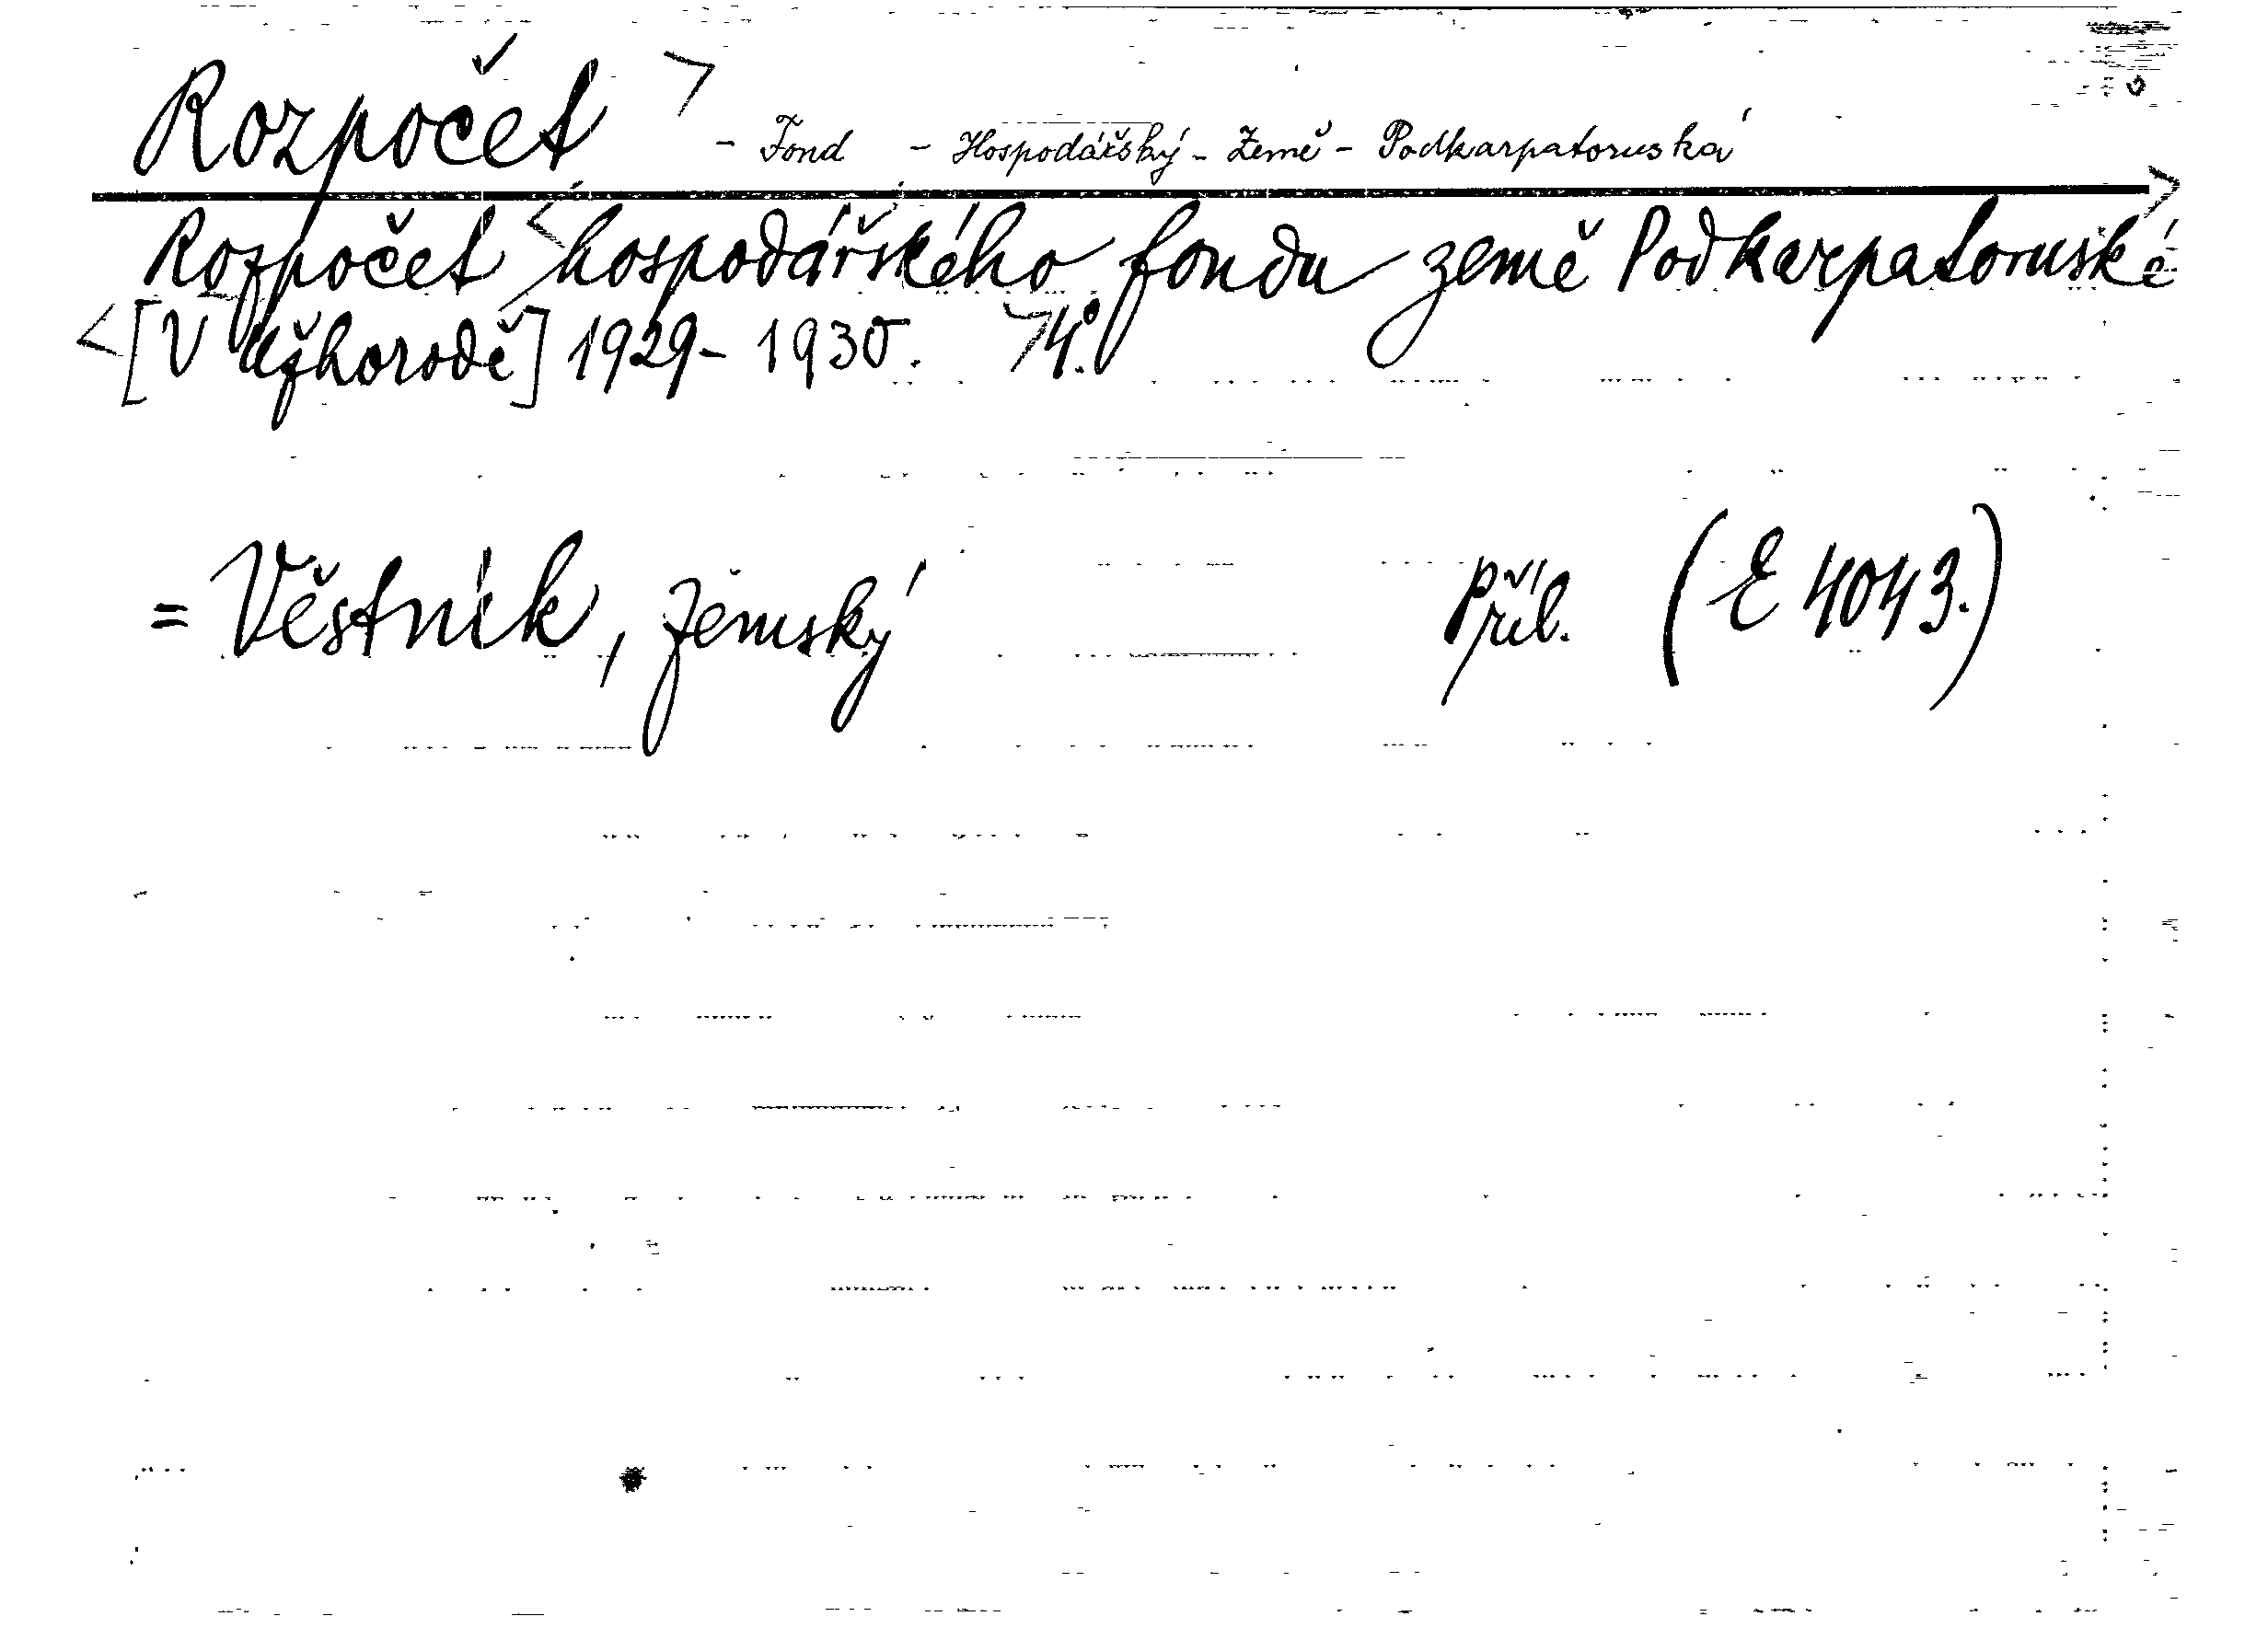 Rozpočet - Fond - Hospodářský - Země - Podkarpatoruská
Rozpočet hospodářského fondu země Podkarpatoruské
[V Užhorodě] 1929- 1930. 4°.
= Věstník, zemský příl. (E 4043.)